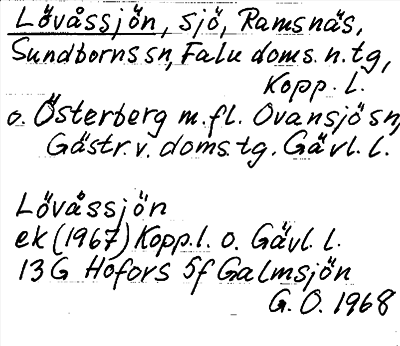 Lövåssjön, sjö, Ramsnäs,
Sundborns sn, Falu doms. n. tg,
Kopp. l.
o. Österberg m.fl. Ovansjö sn,
Gästr. v. doms. tg. Gävl. l.
Lövåssjön
ek (1967) Kopp. l. o. Gävl. l.
13G Hofors 5f Galmsjön
G. O. 1968